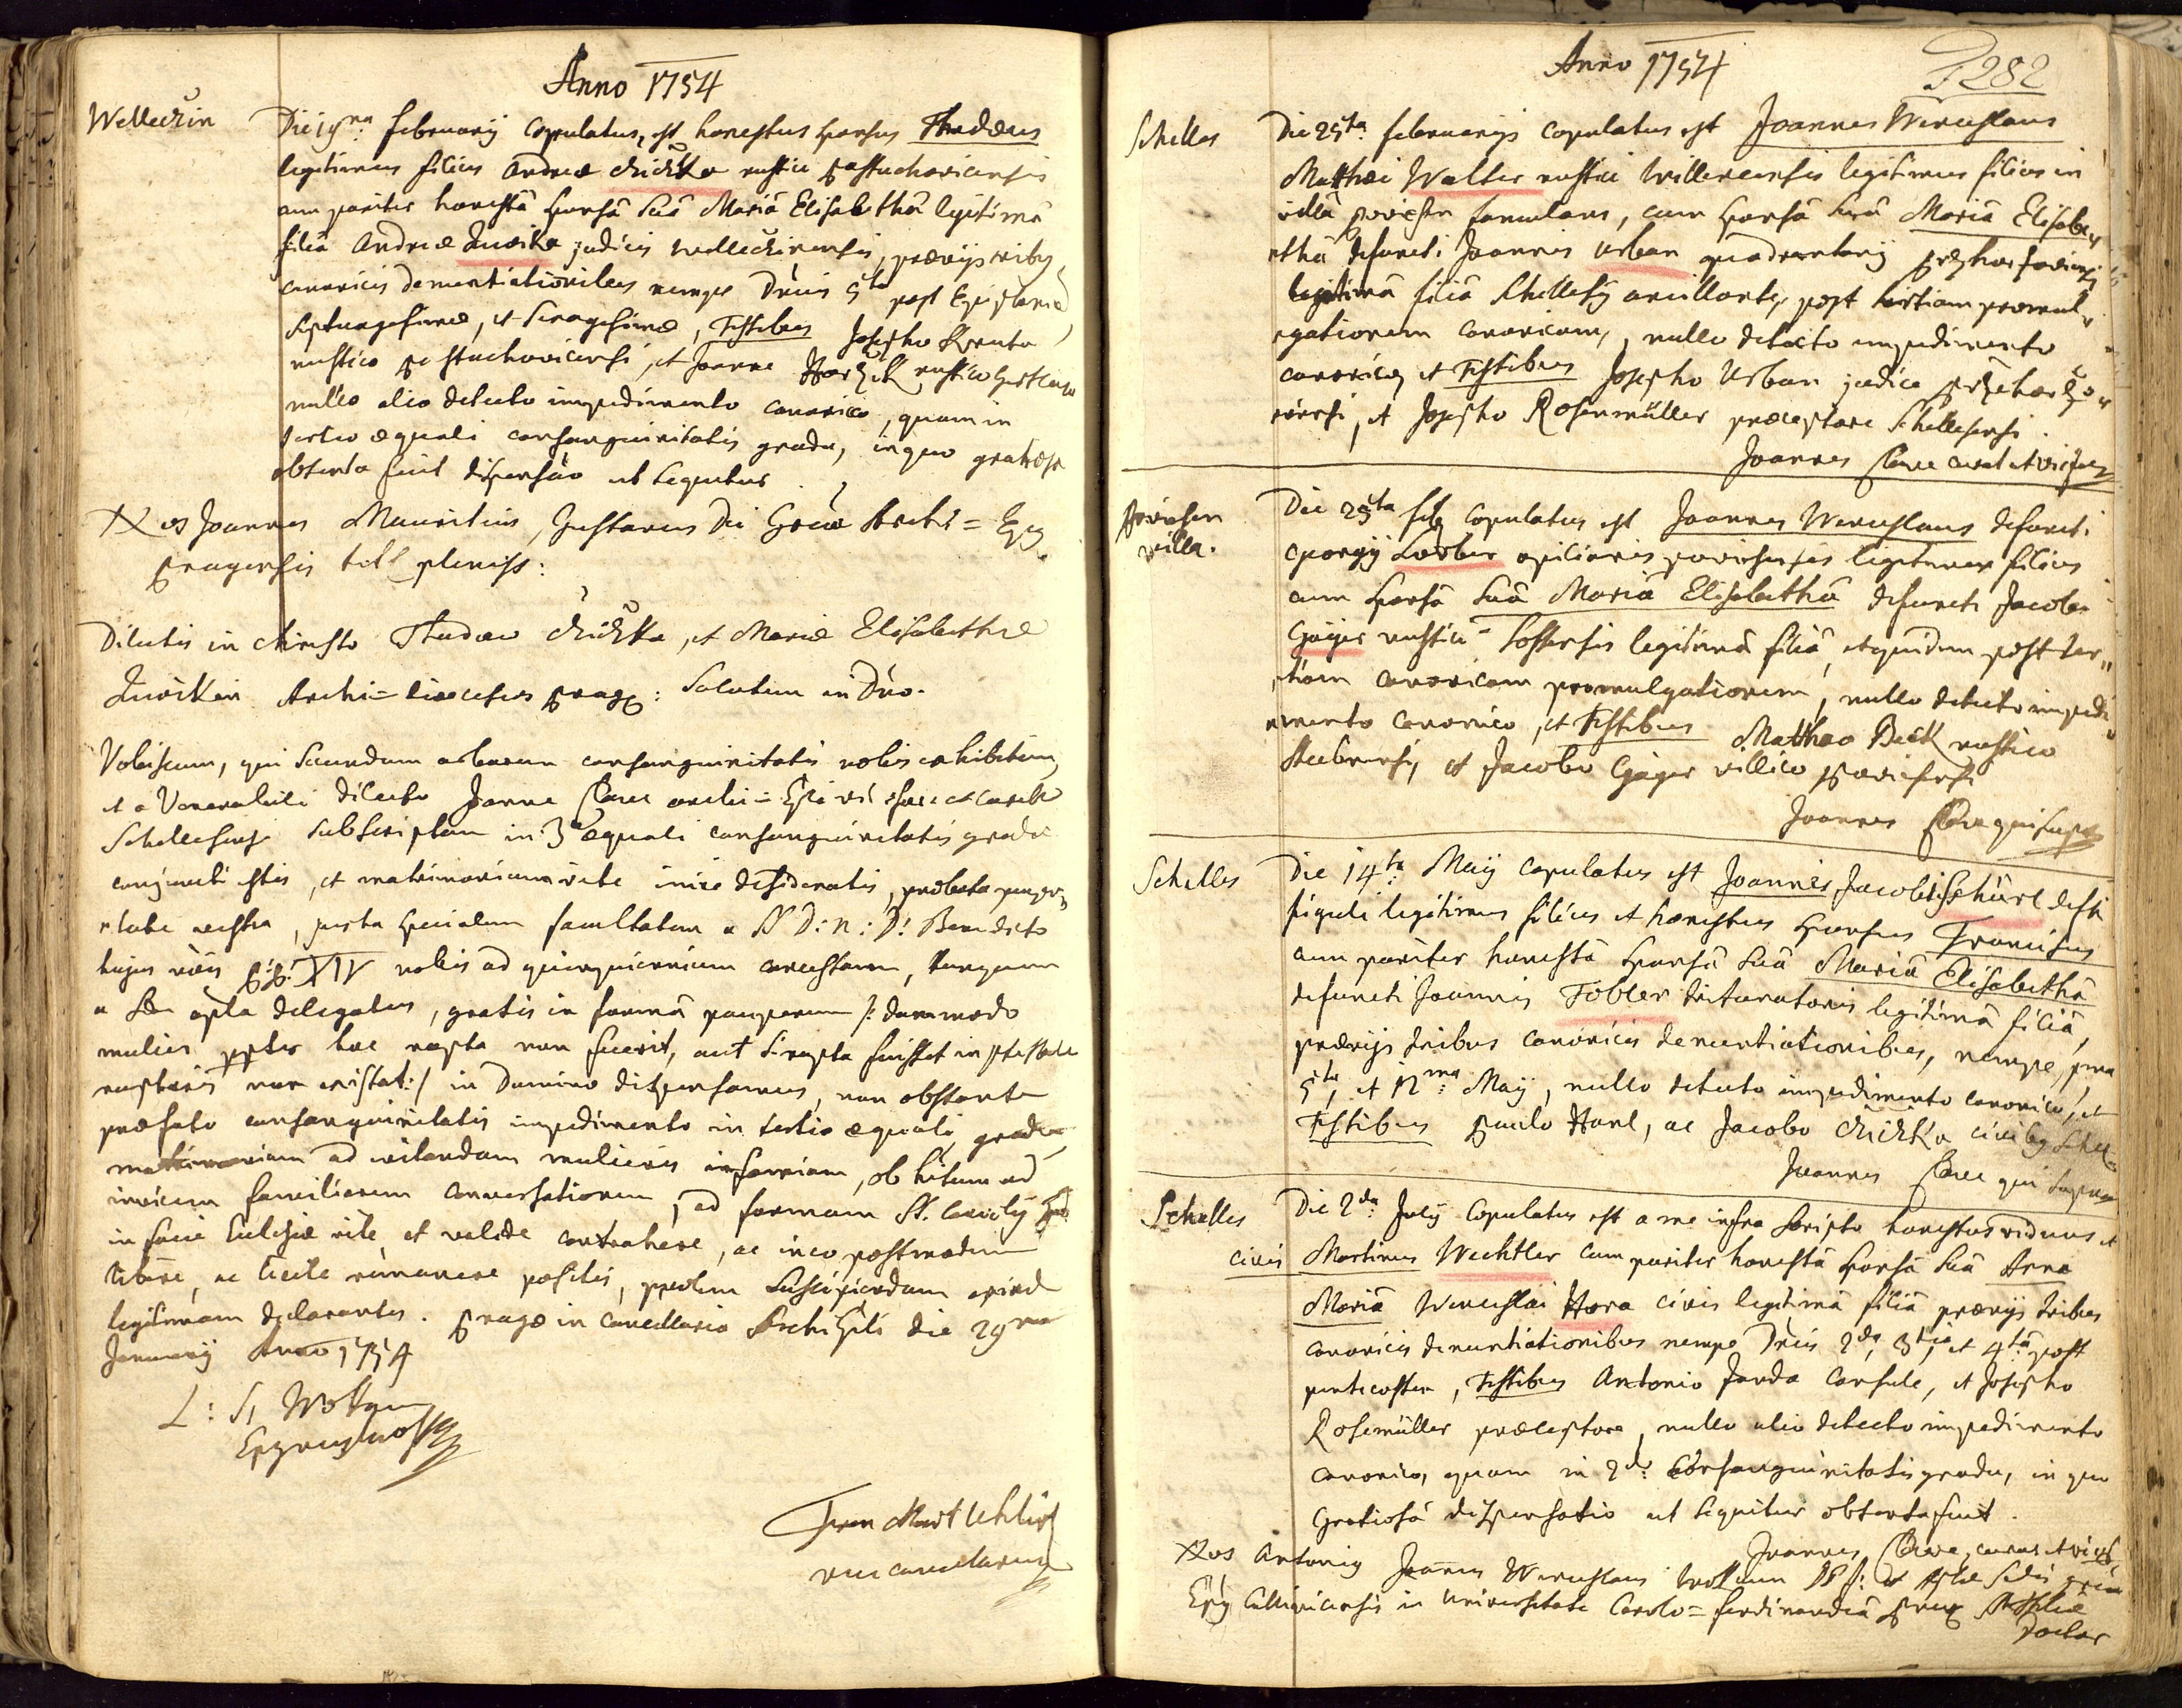 Anno 1754
Wellechin
Die 19na februarij copulatus est honestus sponsus Thadæus
legitimus filius Andreæ chichka rustici Pastuchovicensis
cum pariter honestâ sponsâ suâ Mariâ Elisabethâ legitimâ
filiâ Andreæ judicis Wellechinensis, prævijs tribus
canonicis denuntiationibus nempe Dnicis 5ta post Epiphaniæ
Septuagesimæ, et Sexagesimæ, Testibus Josepho
rustico Pastuchovicensi, et Joanne rustico
nullo alio detecto impedimento canonico, quam in
tertio æquali consanguinitatis gradu, in quo gratiosa
obtenta fuit dispensâo ut sequitur
Nos Joannes Mauritius, Gustavus Dei Gratia Archi = Eps
Pragensis titl pleniss:
Dilectis in christo Thadæo chichka, et Mariæ Elisabethæ
Archi = diœcesios Prag: Salutem in Dno.
Vobiscum, qui secundum arborem consanguinitatis nobis exhibitam,
et a Venerabili dilecto Joanne archi = Epi et curato
Schellesensi subscriptam in 3o æquali consanguinitatis gradu
conjuncti estis, et matrimonium rite inire desideratis, probata pauper
tate vestra, juxta specialem facultatem a SS D: n: D: Benedicto
hujus nois PP: XIV nobis ad quinquennium concessam, tanquam
a Sede apla delegatus, gratis in formâ pauperum /: dummodo
mulier ppter hoc rapta non fuerit, aut si rapta fuisset in ptestate
raptoris non existat :/ in Domino dispensamus, non obstante
præfato consanguinitatis impedimento in tertio æquali gradu,
matrimonium ad vitandam mulieris infamiam, ob hitam ad
invicem familiarem conversationem, ad formam St. Concilij
in facie Ecclesiæ rite et valide contrahere, ac in eo postmodum
libere, ac licite remanere possitis, prolem suscipiendam exinde
legitimam declarantes. Pragæ in Cancellaria ArchiEpli die 29na
Januarij Anno 1754
L: S,
Mart
vice cancellarius
Anno 1754
282
Schelles
Die 25ta februarijs copulatus est Joannes Wenceslaus
Matthæi Walter rustici legitimus filius in
villâ famulans, cum sponsâ suâ Mariâ Elisabe
thâ defuncti Joannis Urban quadrantarij
legitimâ filiâ Schellesij ancillante, post tertiam promul
gationem canonicam, nullo detecto impedimento
canonico, et Testibus Josepho Urban judice
nensi, et Josepho Rosenmüller præceptore Schellesensi.
Joannes curat et
villa.
Die 25ta feb copulatus est Joannes Wenceslaus defuncti
Georgij Lorber opilionis legitimus filius
cum sponsâ suâ Mariâ Elisabethâ defuncti Jacobi
Gäger rustici legitimâ filiâ, et quidem post ter
tiam canonicam promulgationem, nullo detecto impedi
mento canonico, et Testibus Mattheo Beck rustico
et Jacobo Gäger villico
Joannes qui supra
Schelles
Die 14ta Maij copulatus est Joannis Jacobi Schürl
figuli legitimus filius et honestus sponsus Franciscus
cum pariter honestâ sponsâ suâ Mariâ Elisabethâ
defuncti Joannis Tobler trituratoris legitimâ filiâ,
prævijs tribus canonicis denuntiationibus, nempe, prima
5ta, et 12ma Maij, nullo detecto impedimento canonico, et
Testibus Paulo Hanl, ac Jacobo chichka civibus
Joannes qui supra
Schelles
civis
Die 2da July copulatus est a me infra scripto honestus viduus et
Martinus Wechtler cum pariter honestâ sponsâ suâ Anna
Mariâ Wenceslai Hora civis legitimâ filiâ prævijs tribus
canonicis denuntiationibus nempe Dnicis 2da, 3tia, et 4ta post
pentecosten, Testibus Antonio Janda Consule, et Josepho
Rosemüller præceptore, nullo alio detecto impedimento
canonico, quam in 2do: Consanguinitatis gradu, in quo
Gratiosâ dispensatio ut sequitur obtenta fuit.
Joannes curatus et
Nos Antonius Joannes Wenceslaus Wokaun
Epus Callinicensis in Universitate Carolo = ferdinandeâ
Doctor